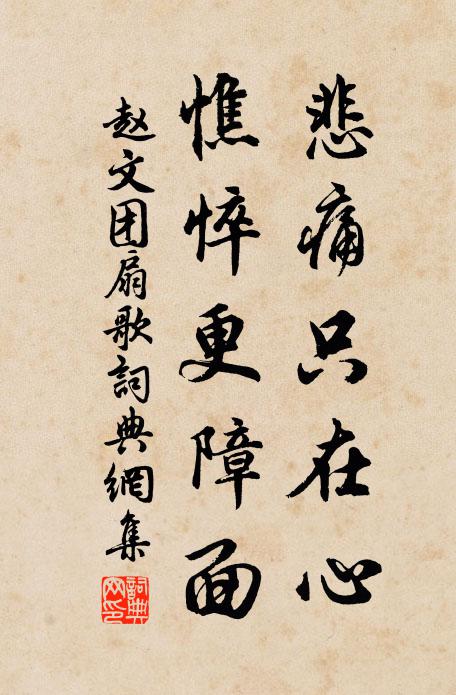 悲痛只在心
憔悴更障面
赵文团扇歌詞典網集
詞典网印